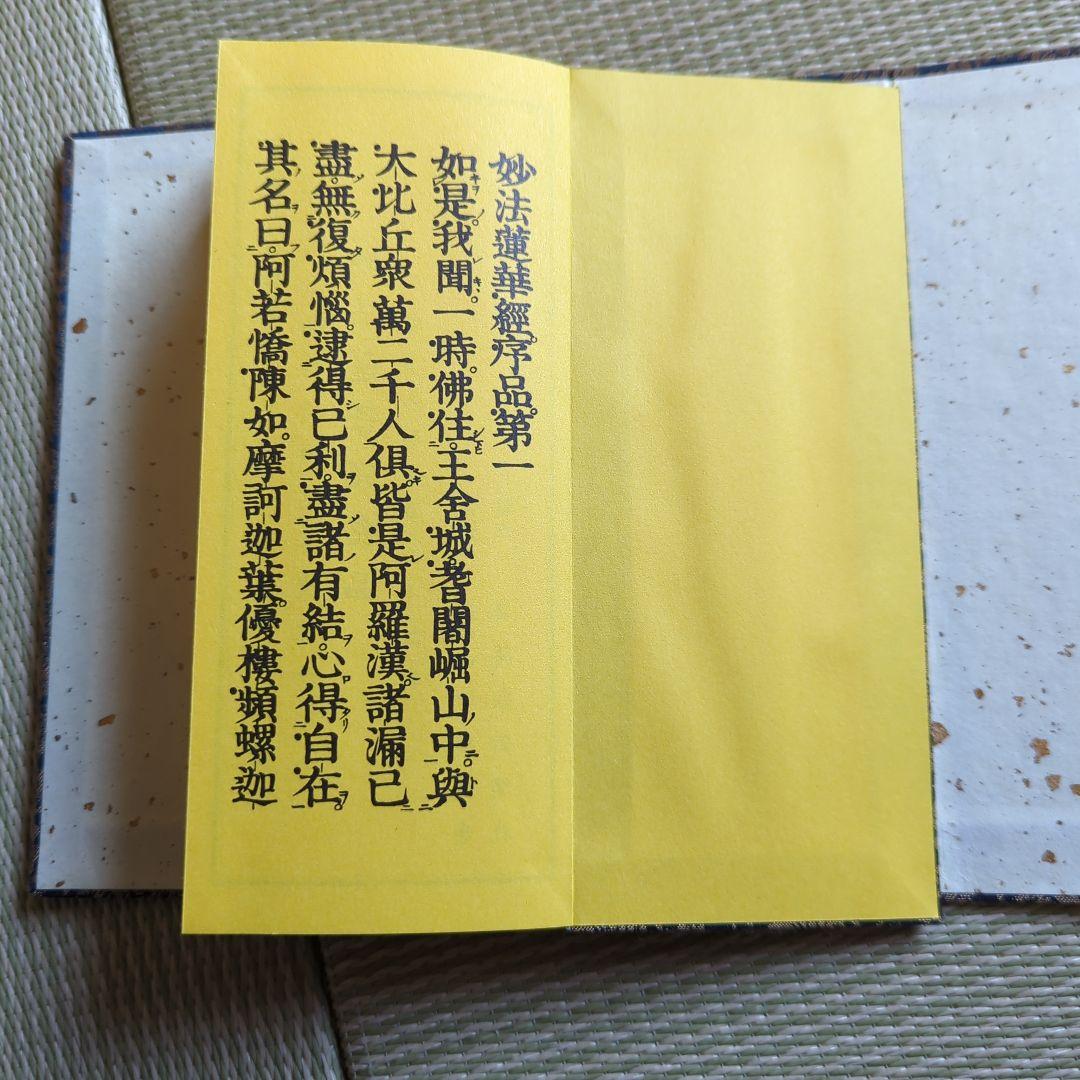 妙法蓮華經序品第一
如是我聞一時佛住王舍城耆闍崛山中與
大比丘眾萬二千人俱皆是阿羅漢諸漏已
盡無復煩惱逮得已利盡諸有結心得自在
其名曰阿若憍陳如摩訶迦葉優樓頻螺迦